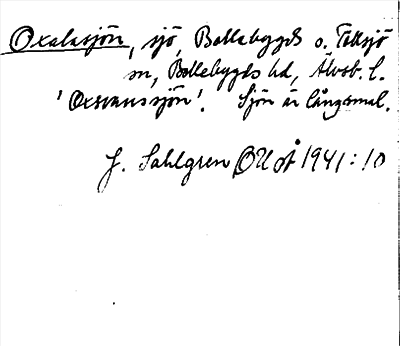 Oxalasjön, sjö, Bollebygds o. Töllsjö
sn, Bollebygds hd, Älvsb. l.
'Oxsvanssjön'. Sjön är långsmal.
J. Sahlgren OUÅ 1941:10